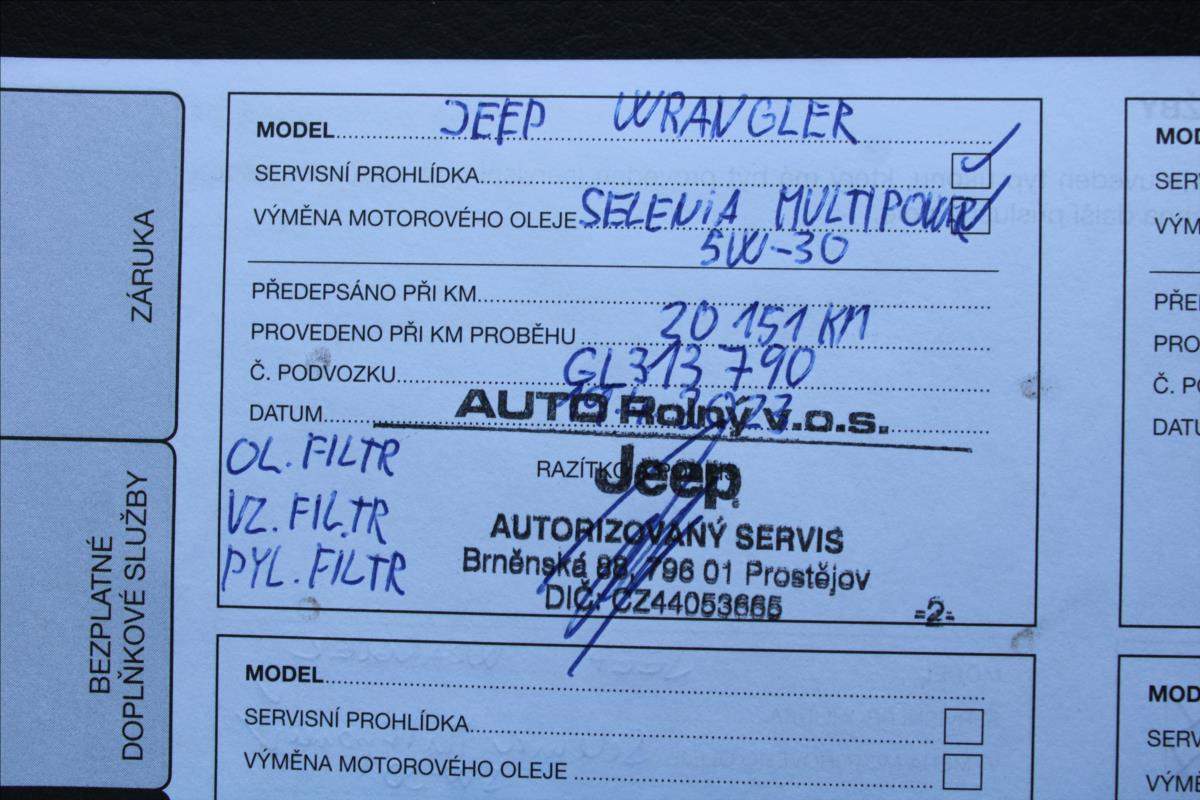 ZÁRUKA
BEZPLATNÉ
DOPLŇKOVÉ SLUŽBY
MODEL JEEP WRANGLER
SERVISNÍ PROHLÍDKA
VÝMĚNA MOTOROVÉHO OLEJE SELENIA MULTIPOWER
5W-30
PŘEDEPSÁNO PŘI KM
PROVEDENO PŘI KM PROBĚHU 20 151 KM
Č. PODVOZKU GL313 790
DATUM
AUTO Rolný v.o.s.
OL. FILTR
RAZÍTKO
Jeep
VZ. FILTR
AUTORIZOVANÝ SERVIS
PYL. FILTR
Brněnská 88, 796 01 Prostějov
DIČ: CZ44053665
-2-
MODEL
SERVISNÍ PROHLÍDKA
VÝMĚNA MOTOROVÉHO OLEJE